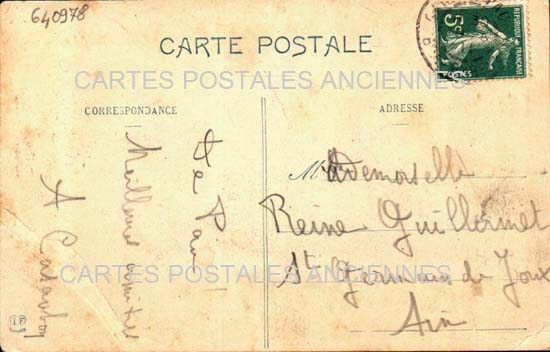 640978
CARTE POSTALE
5c
REPUBLIQUE FRANÇAISE
POSTES
CARTES POSTALES ANCIENNES
CORRESPONDANCE
ADRESSE
Meilleures amitiés
A
Mademoiselle
Reine Guillermet
St Germain de Joux
Ain
CARTES POSTALES ANCIENNES